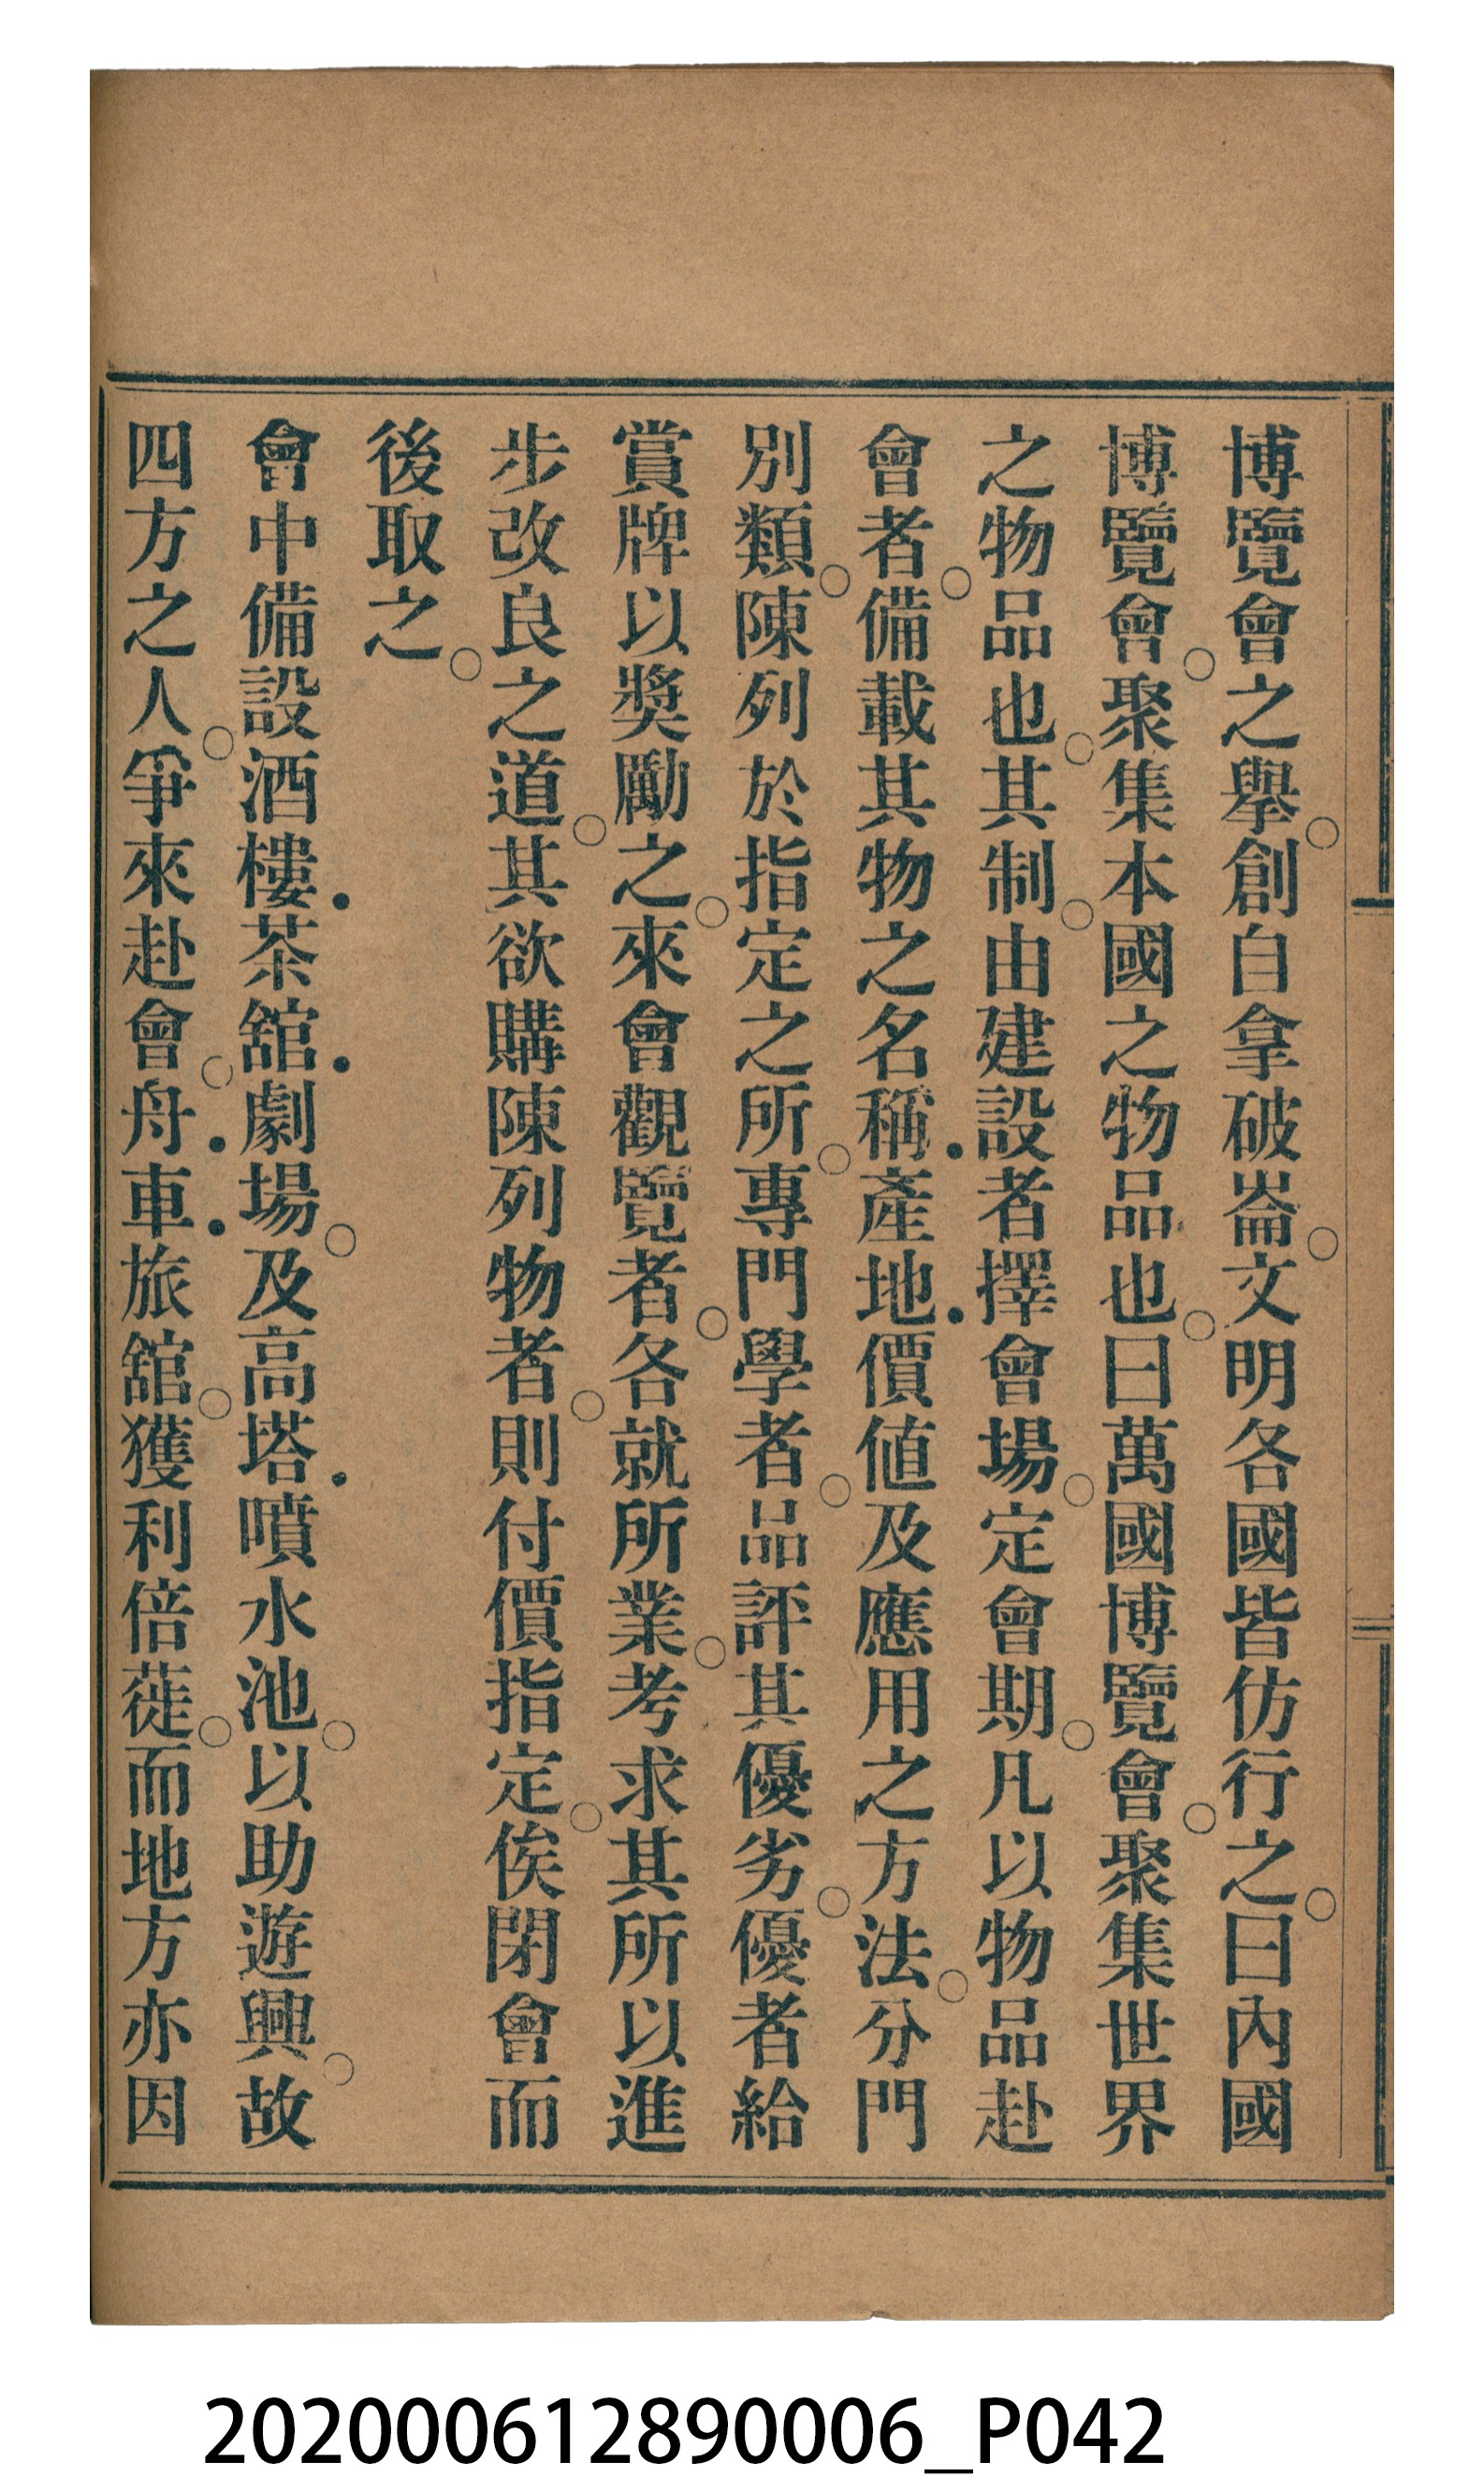 博覽會之擧。創自拿破崙。文明各國皆仿行之。曰內國
博覽會。聚集本國之物品也。曰萬國博覽會。聚集世界
之物品也。其制。由建設者擇會場。定會期。凡以物品赴
會者。備載其物之名稱．產地．價値及應用之方法。分門
別類。陳列於指定之所。專門學者。品評其優劣。優者給
賞牌以奬勵之。來會觀覽者。各就所業。考求其所以進
步改良之道。其欲購陳列物者。則付價指定。俟閉會而
後取之。
會中備設酒樓．茶舘．劇場。及高塔．噴水池。以助遊興。故
四方之人。爭來赴會。舟．車．旅舘。獲利倍蓰。而地方亦因
202000612890006_P042